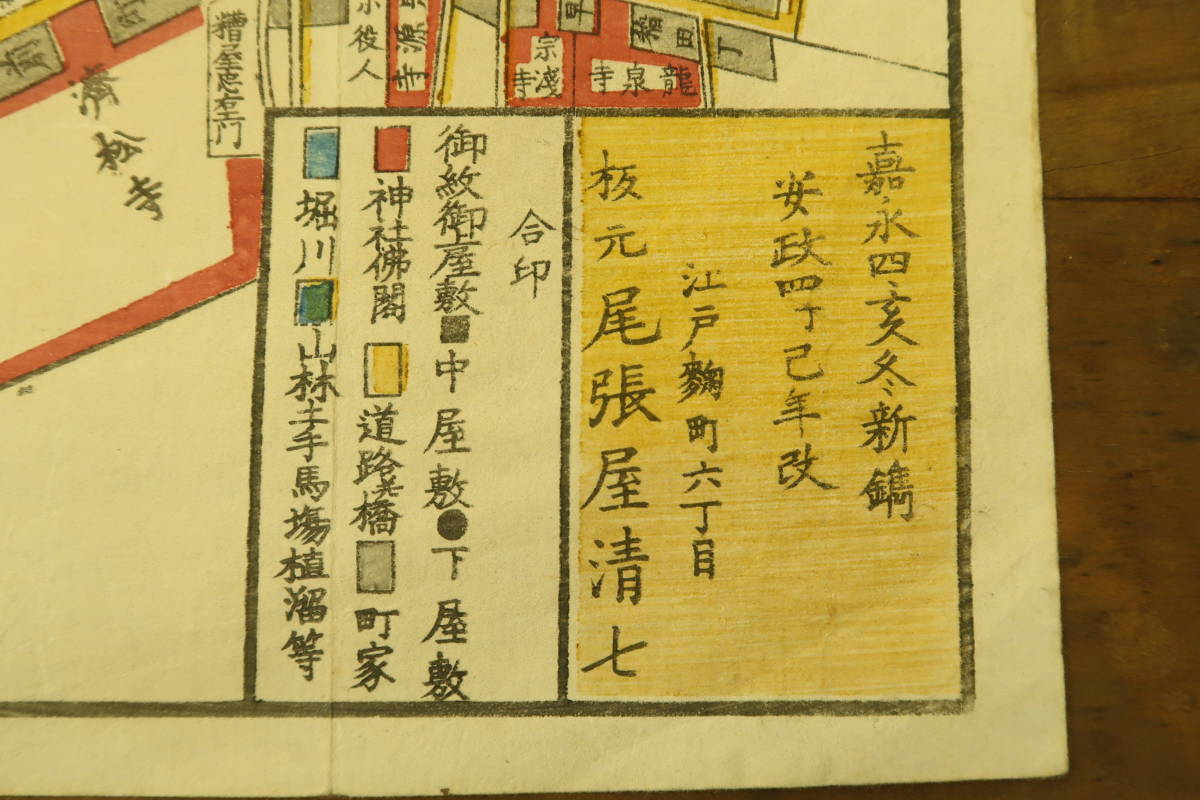 嘉永四亥冬新鐫
安政四丁巳年改
江戸麹町六丁目
板元 尾張屋清七
合印
御紋御上屋敷■中屋敷●下屋敷
神社佛閣 道路并橋 町家
堀川 山林土手馬場植溜等
龍泉寺
宗淺寺
稲田
丁
早
源寺
役人
糟屋忠右エ門
濟松寺